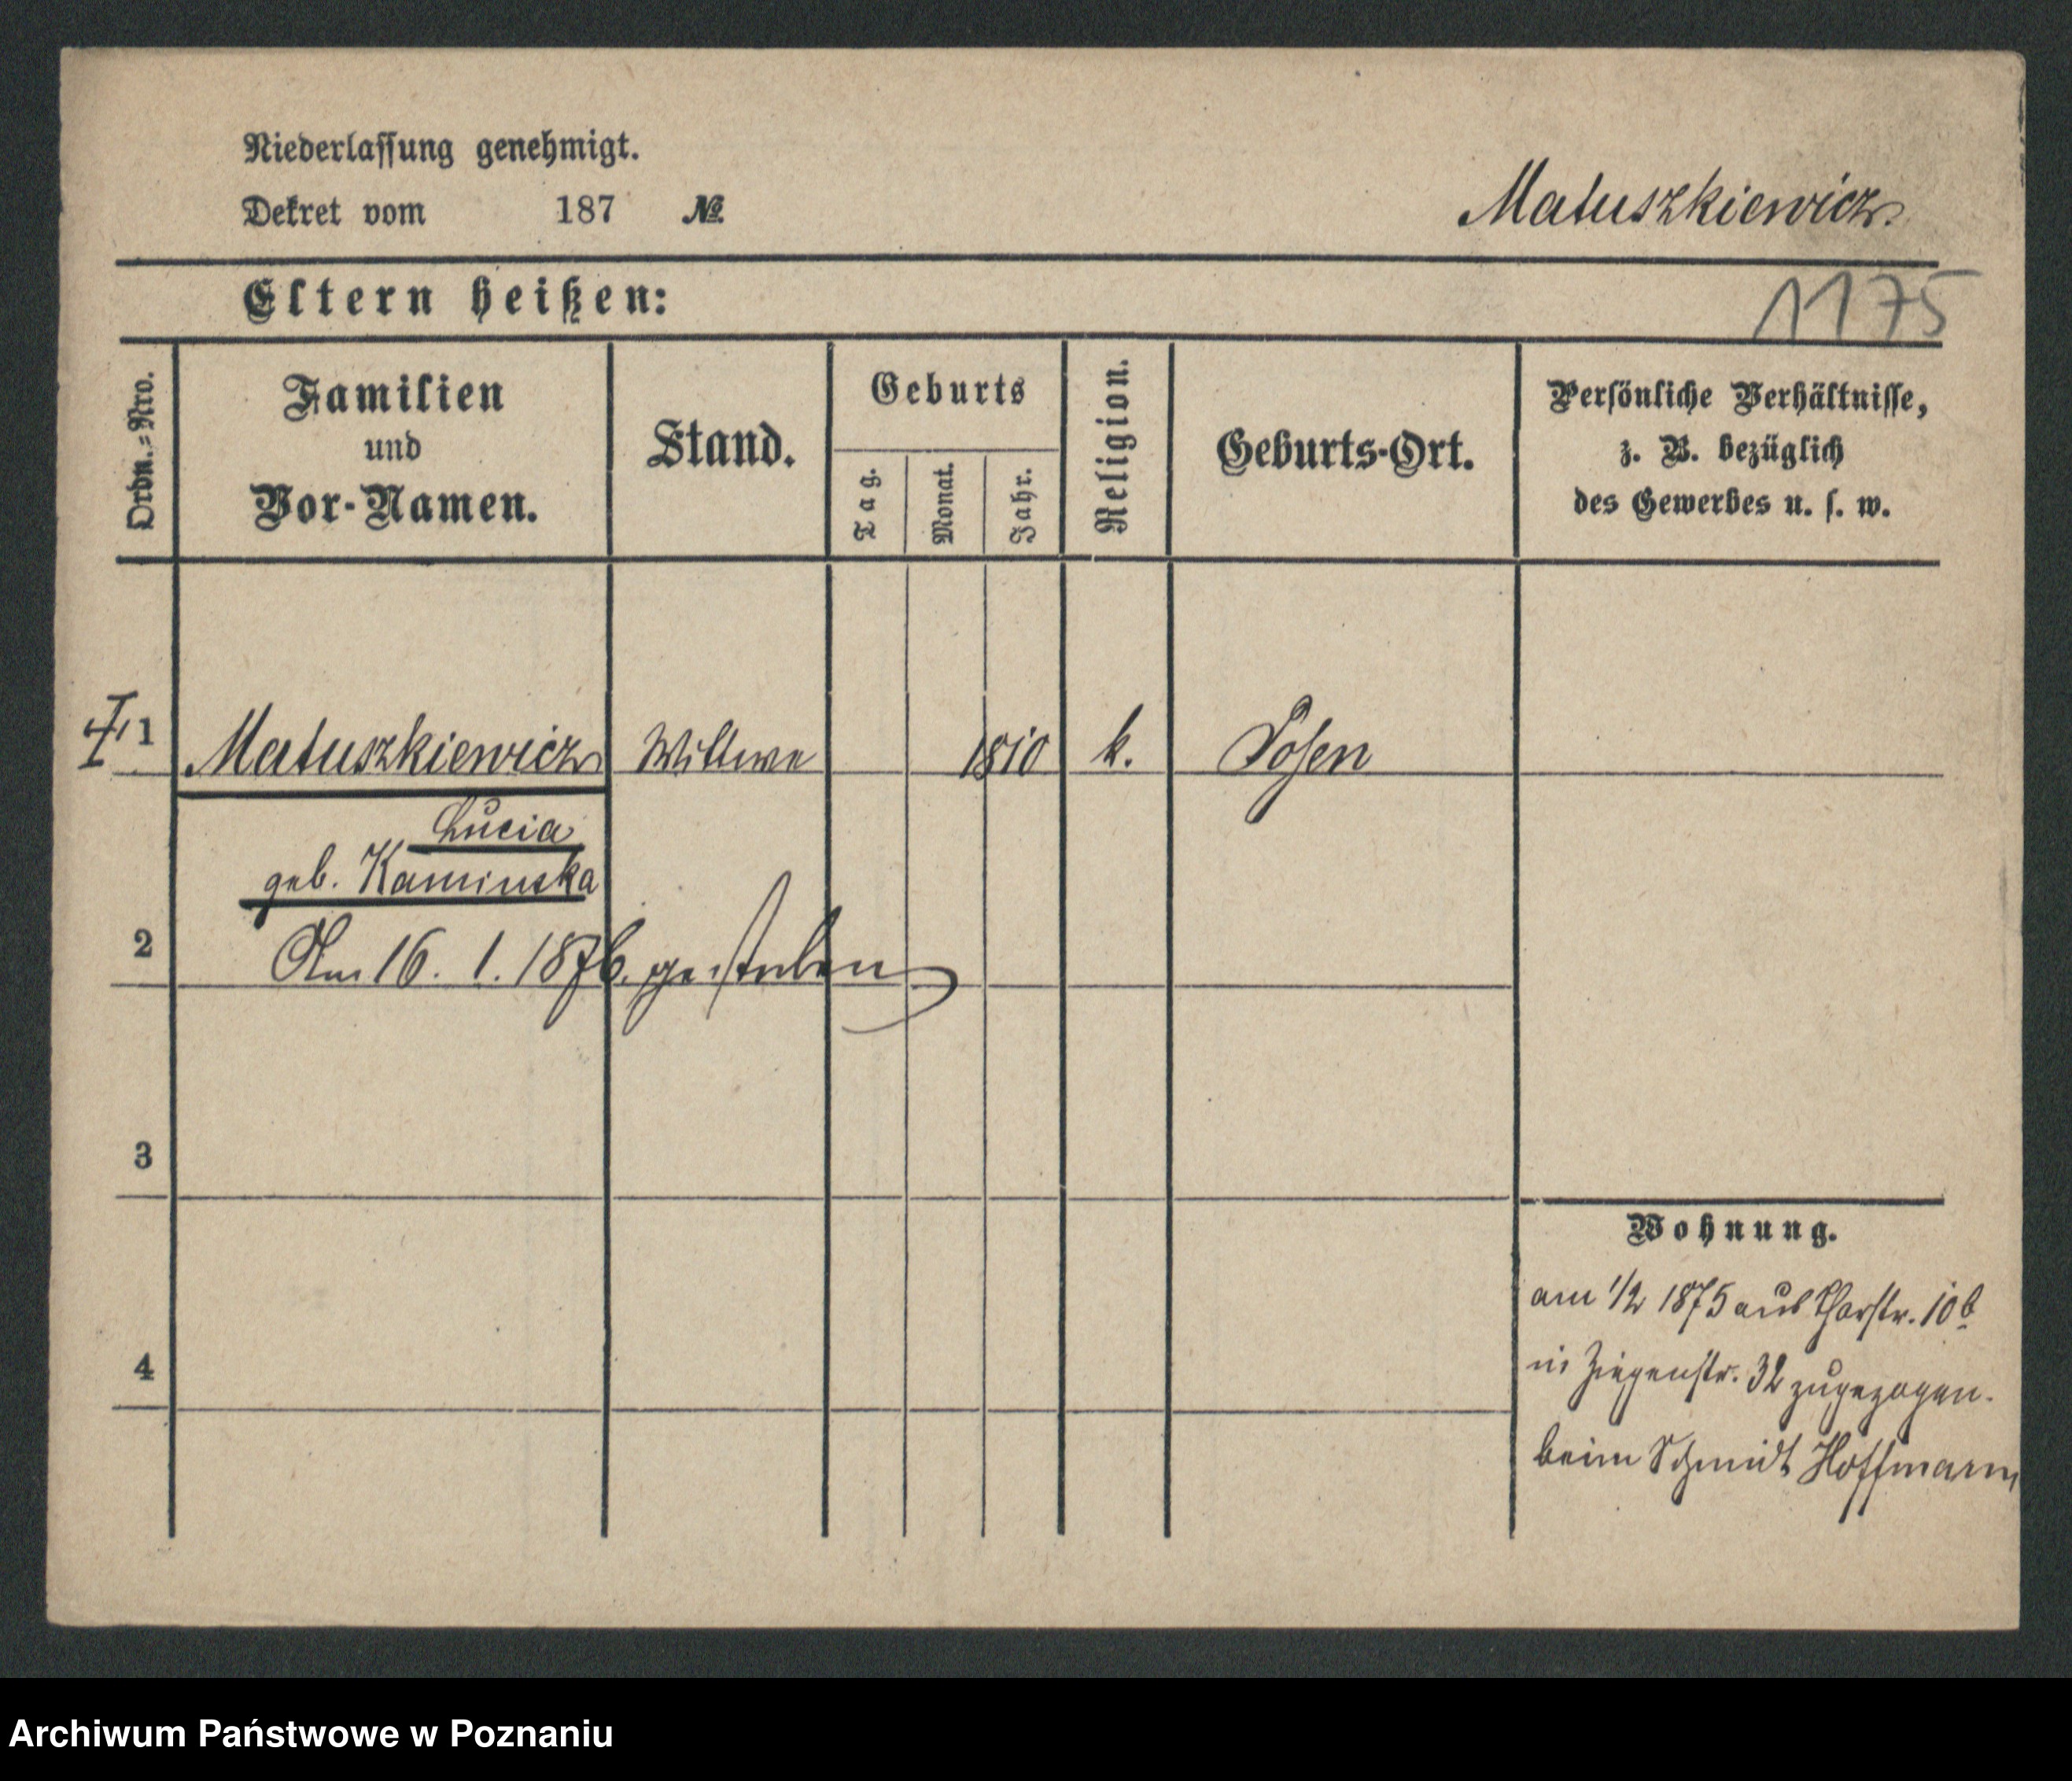 Niederlassung genehmigt.
Dekret vom 187 №
Matuszkiewicz.
Eltern heißen:
1175
Ordn.=Nro.
Familien
und
Vor-Namen.
Stand.
Geburts
Tag.
Monat.
Jahr.
Religion.
Geburts-Ort.
Persönliche Verhältnisse,
z. B. bezüglich
des Gewerbes u. s. w.
1 Matuszkiewicz Wittwe 1810 k. Posen
Lucia
geb. Kaminska
2 Am 16. 1. 1876. gestorben
3
Wohnung.
am 1/2 1875 aus Thorstr. 10b
4
in Ziegenstr. 32 zugezogen.
beim Schmidt Hoffmann
Archiwum Państwowe w Poznaniu